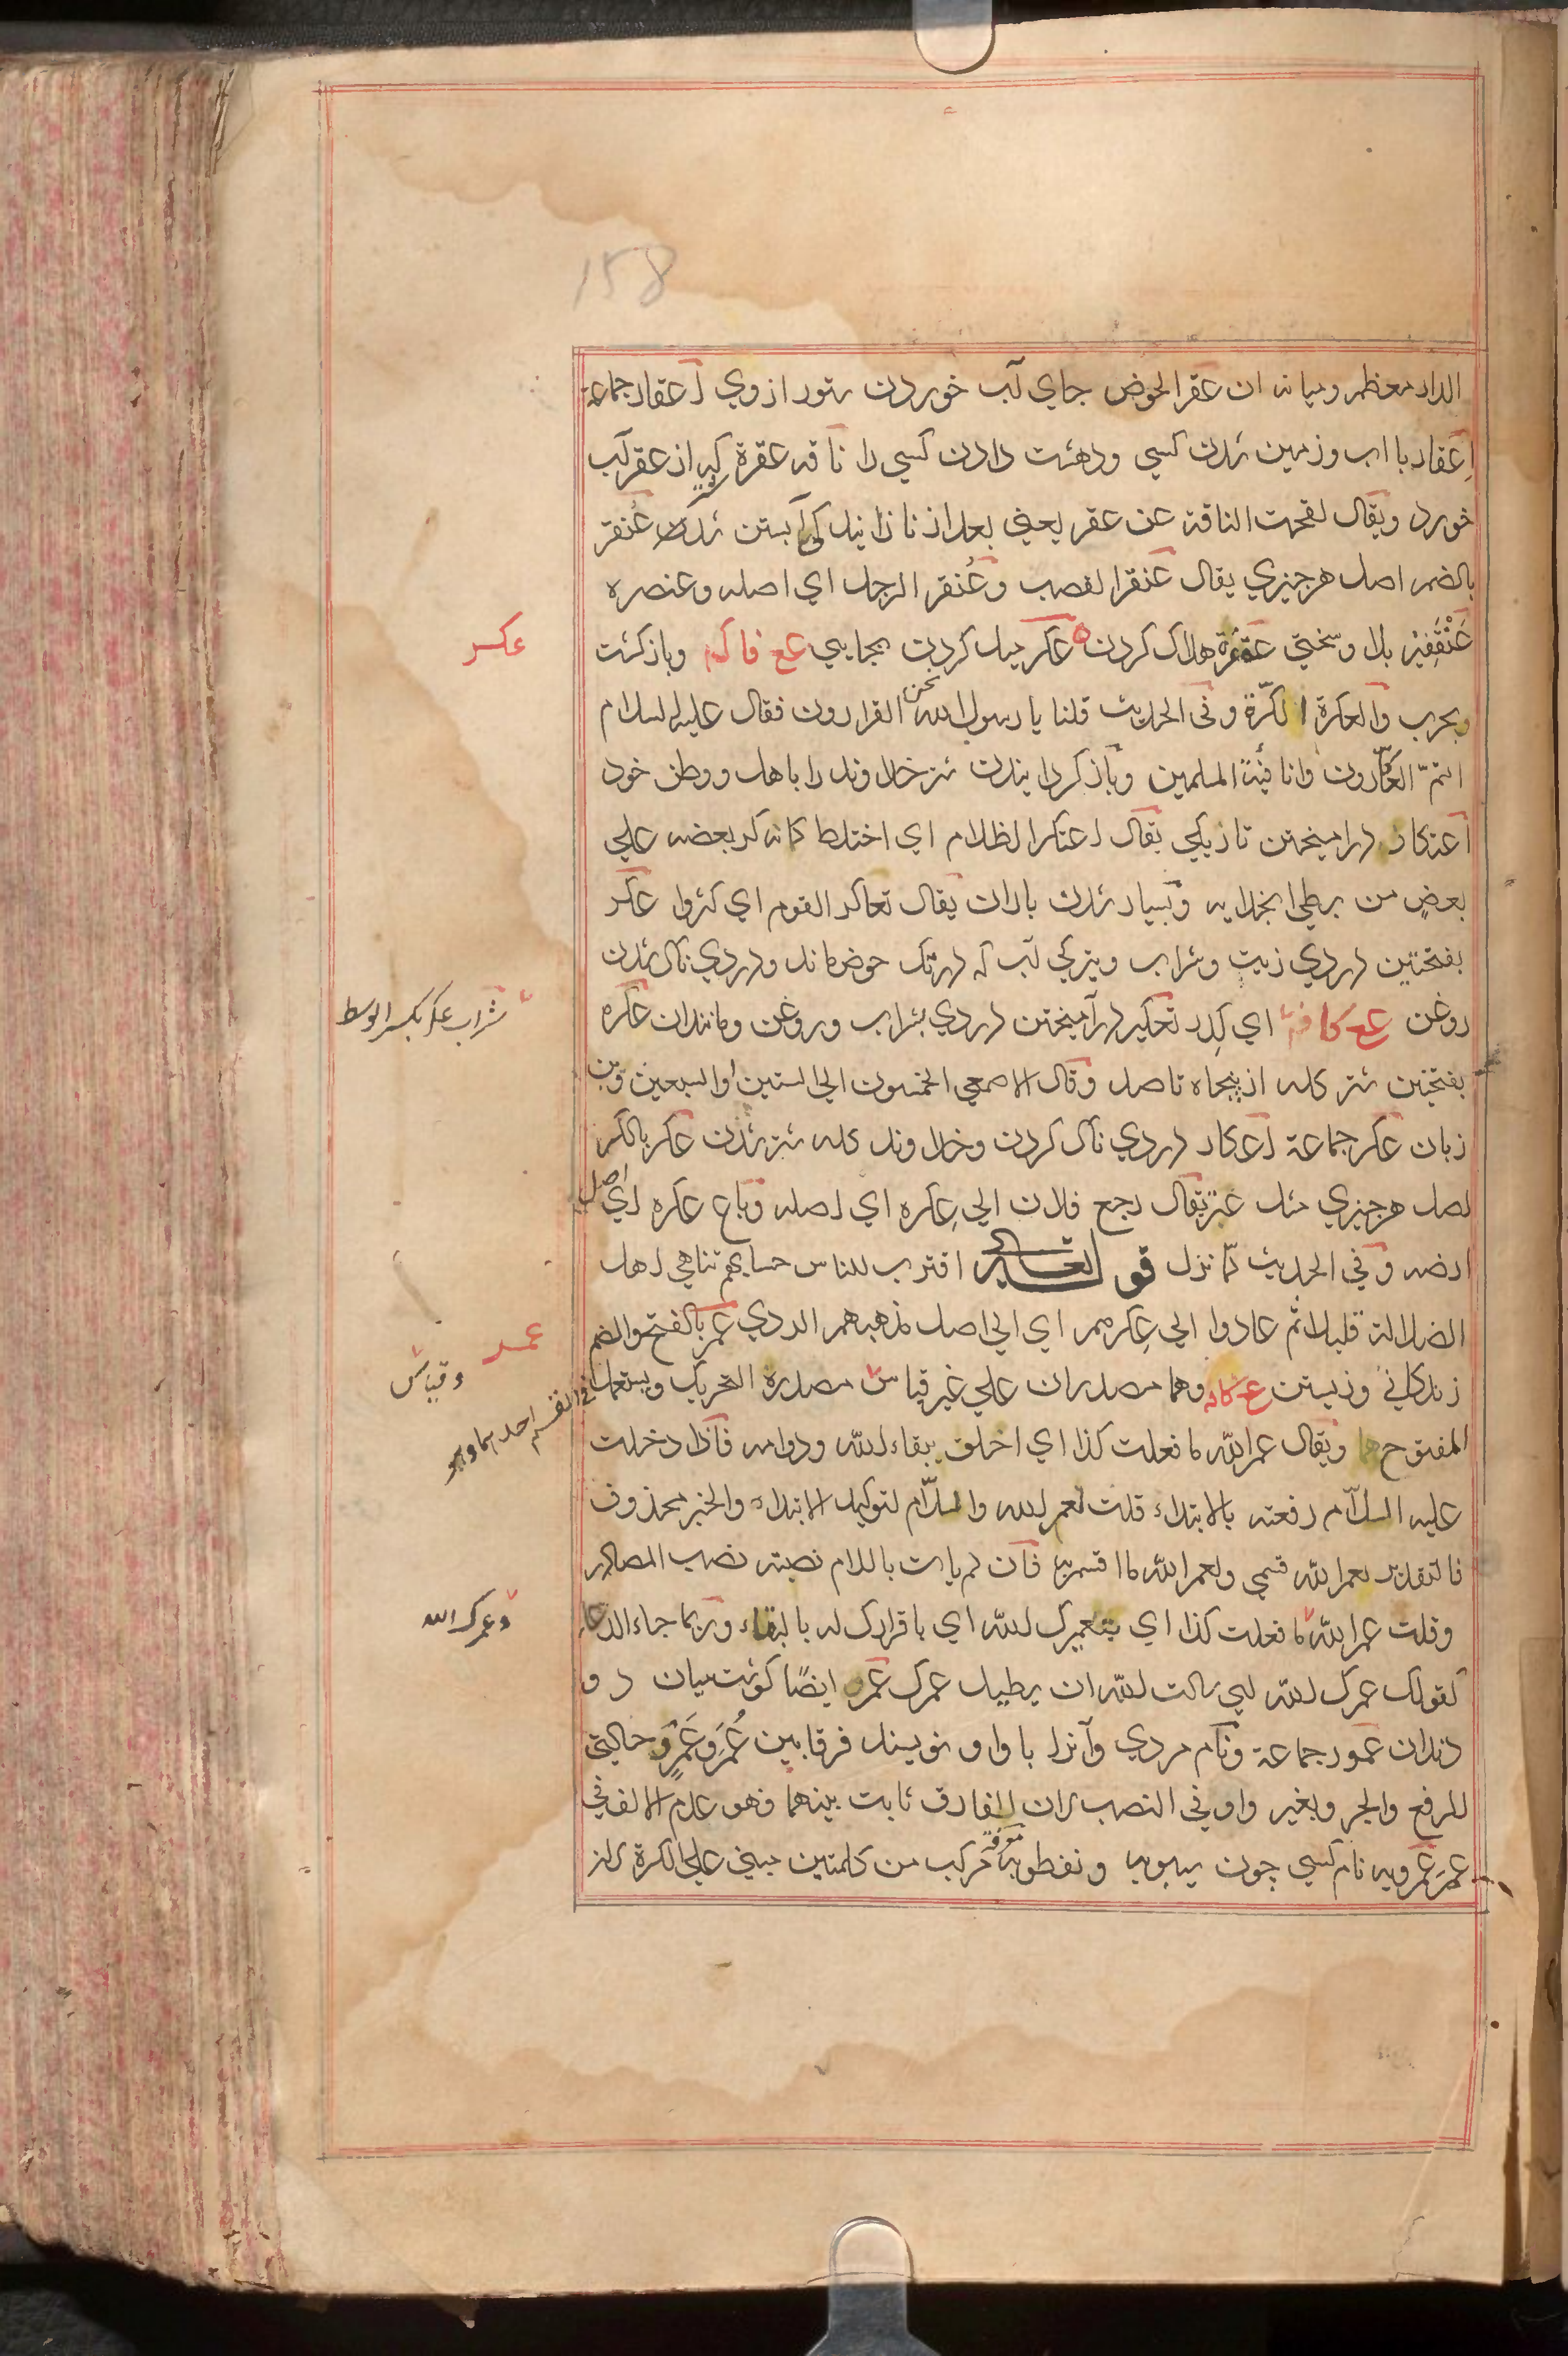 158
الدار معظمر وميانه ان عقر الحوض جاي آب خوردن ستور ازوي اعقار جماعة
اِعقار بااب وزمين شدن كسي ودهشت دادن كسي را ناقه عقرة كه از عقر آب
خورد ويقال لقحت الناقة عن عقر يعني بعد از نازانيدكي آبستن شد عنقر
بالضمر اصل هر چيزي يقال عنقر القصب وعُنقر الرجل اي اصله وعنصره
عَنْقَفِيْر بلا وسختي عقفرة هلاك كردن عكر ميل كردن بجايي عع فا كم وبازكشت
وبحرب والعكرة الكرّة وفي الحديث قلنا يا رسول الله نحن الفرارون فقال عليه السلام
انتم العكّارون وانا فئة المسلمين وبازكردانيدن شتر خداوند را باهل ووطن خود
اعتكار درآميختن تاريكي يقال اعتكر الظلام اي اختلط كانه كر بعضه علي
بعضٍ من بطي انجلايه وبسيار شدن باران يقال تعاكر القوم اي كثروا عكر
بفتحتين دردي زيت وشراب وتيركي آب كه در تك حوض ماند ودردي ناك شدن
روغن عع كا فت اي كدر تعكير درآميختن دردي بشراب وروغن ومانندان عكره
بفتحتين شتر كله از پنجاه تا صد وقال الاصمعي الخمسون الي الستين او السبعين وبن
زبان عكر جماعة اعكار دردي ناك كردن وخداوند كله شتر شدن عكر بالكسر
اصل هر چيزي مثل عتر يقال رجع فلان الي عِكره اي اصله وباع عكره اي اصل
ارضه وفي الحديث لما نزل قوله تعالي اقترب للناس حسابهم تناهي اهل
الضلالة قليلا ثم عادوا الي عِكرهمر اي الي اصل مذهبهمر الردي عمر بالفتح والضم
زندكاني وزيستن وهما مصدران علي غير قياس مصدره التحريك ويستعمل في القسم احدهما وهو
المفتوح هما ويقال عمر الله ما فعلت كذا اي احلف ببقاء الله ودوامه فاذا دخلت
عليه اللآم رفعته بالابتداء قلت لعمر الله واللّام لتوكيد الابتداء والخبر محذوف
فالتقدير لعمر الله قسمي ولعمر الله ما اقسم به فان لم يات باللام نصبته نصب المصادر
وقلت عمر الله ما فعلت كذا اي بتعميرك الله اي باقرارك له بالبقاء وربما جاء الدعاء
كقولك عمرك الله اي سالت الله ان يطيل عمرك عمر ايضًا كوشت ميان دو
دندان عمور جماعة ونام مردي وآنرا با واو نويسند فرقا بين عُمَر وعَمرٍو حالتي
الرفع والجر وبغير واو في النصب لان الفارق ثابت بينهما وهو عدم الالف في
عمر عمرويه نام كسي چون سيبويه ونفطويه معرفة مركب من كلمتين مبني علي الكسرة لان
عكسر
شراب عكر بكسر الوسط
عمـر
وقياس
وعمرك الله